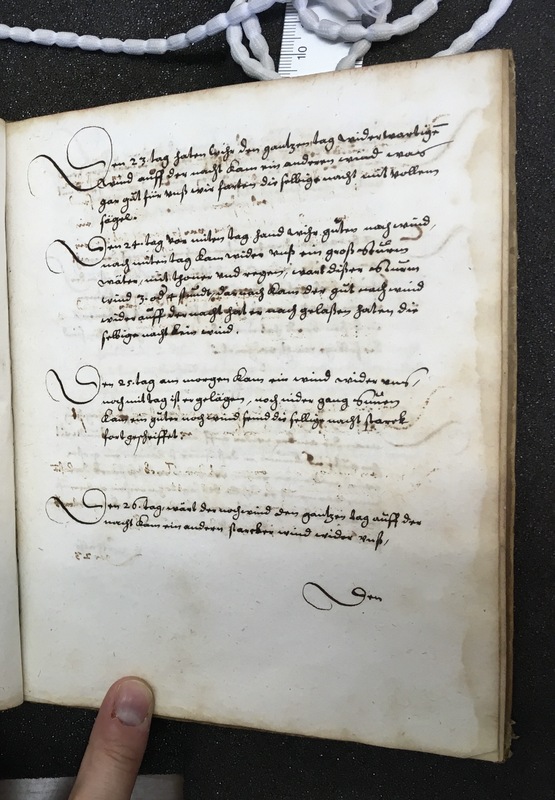 10
Den 23. tag haten wihr den gantzen tag widerwertigen
wind auff der nacht kam ein anderen wind was
gar gůt für vnß wir farten die selbige nacht mit vollem
sägel.
Den 24. tag vor miten tag hand wihr gůten noch wind,
nach miten tag kam wider vnß ein groß Sturm
wäter, mit thoner vnd regen, wart dißer Sturm
wind 3. od 4 stund, dar nach kam der gůt nach wind
wider auff der nacht hat er nach gelaßen haten die
selbige nacht kein wind.
Den 25. tag am morgen kam ein wind wider vns,
noch mittag ist er gelägen, noch nider gang Sunen
kam ein gůter noch wind seind die selbige nacht starck
fort geschiffet.
Den 26. tag wärt der nochwind den gantzen tag auff der
nacht kam ein anderen starcker wind wider vnß,
Den